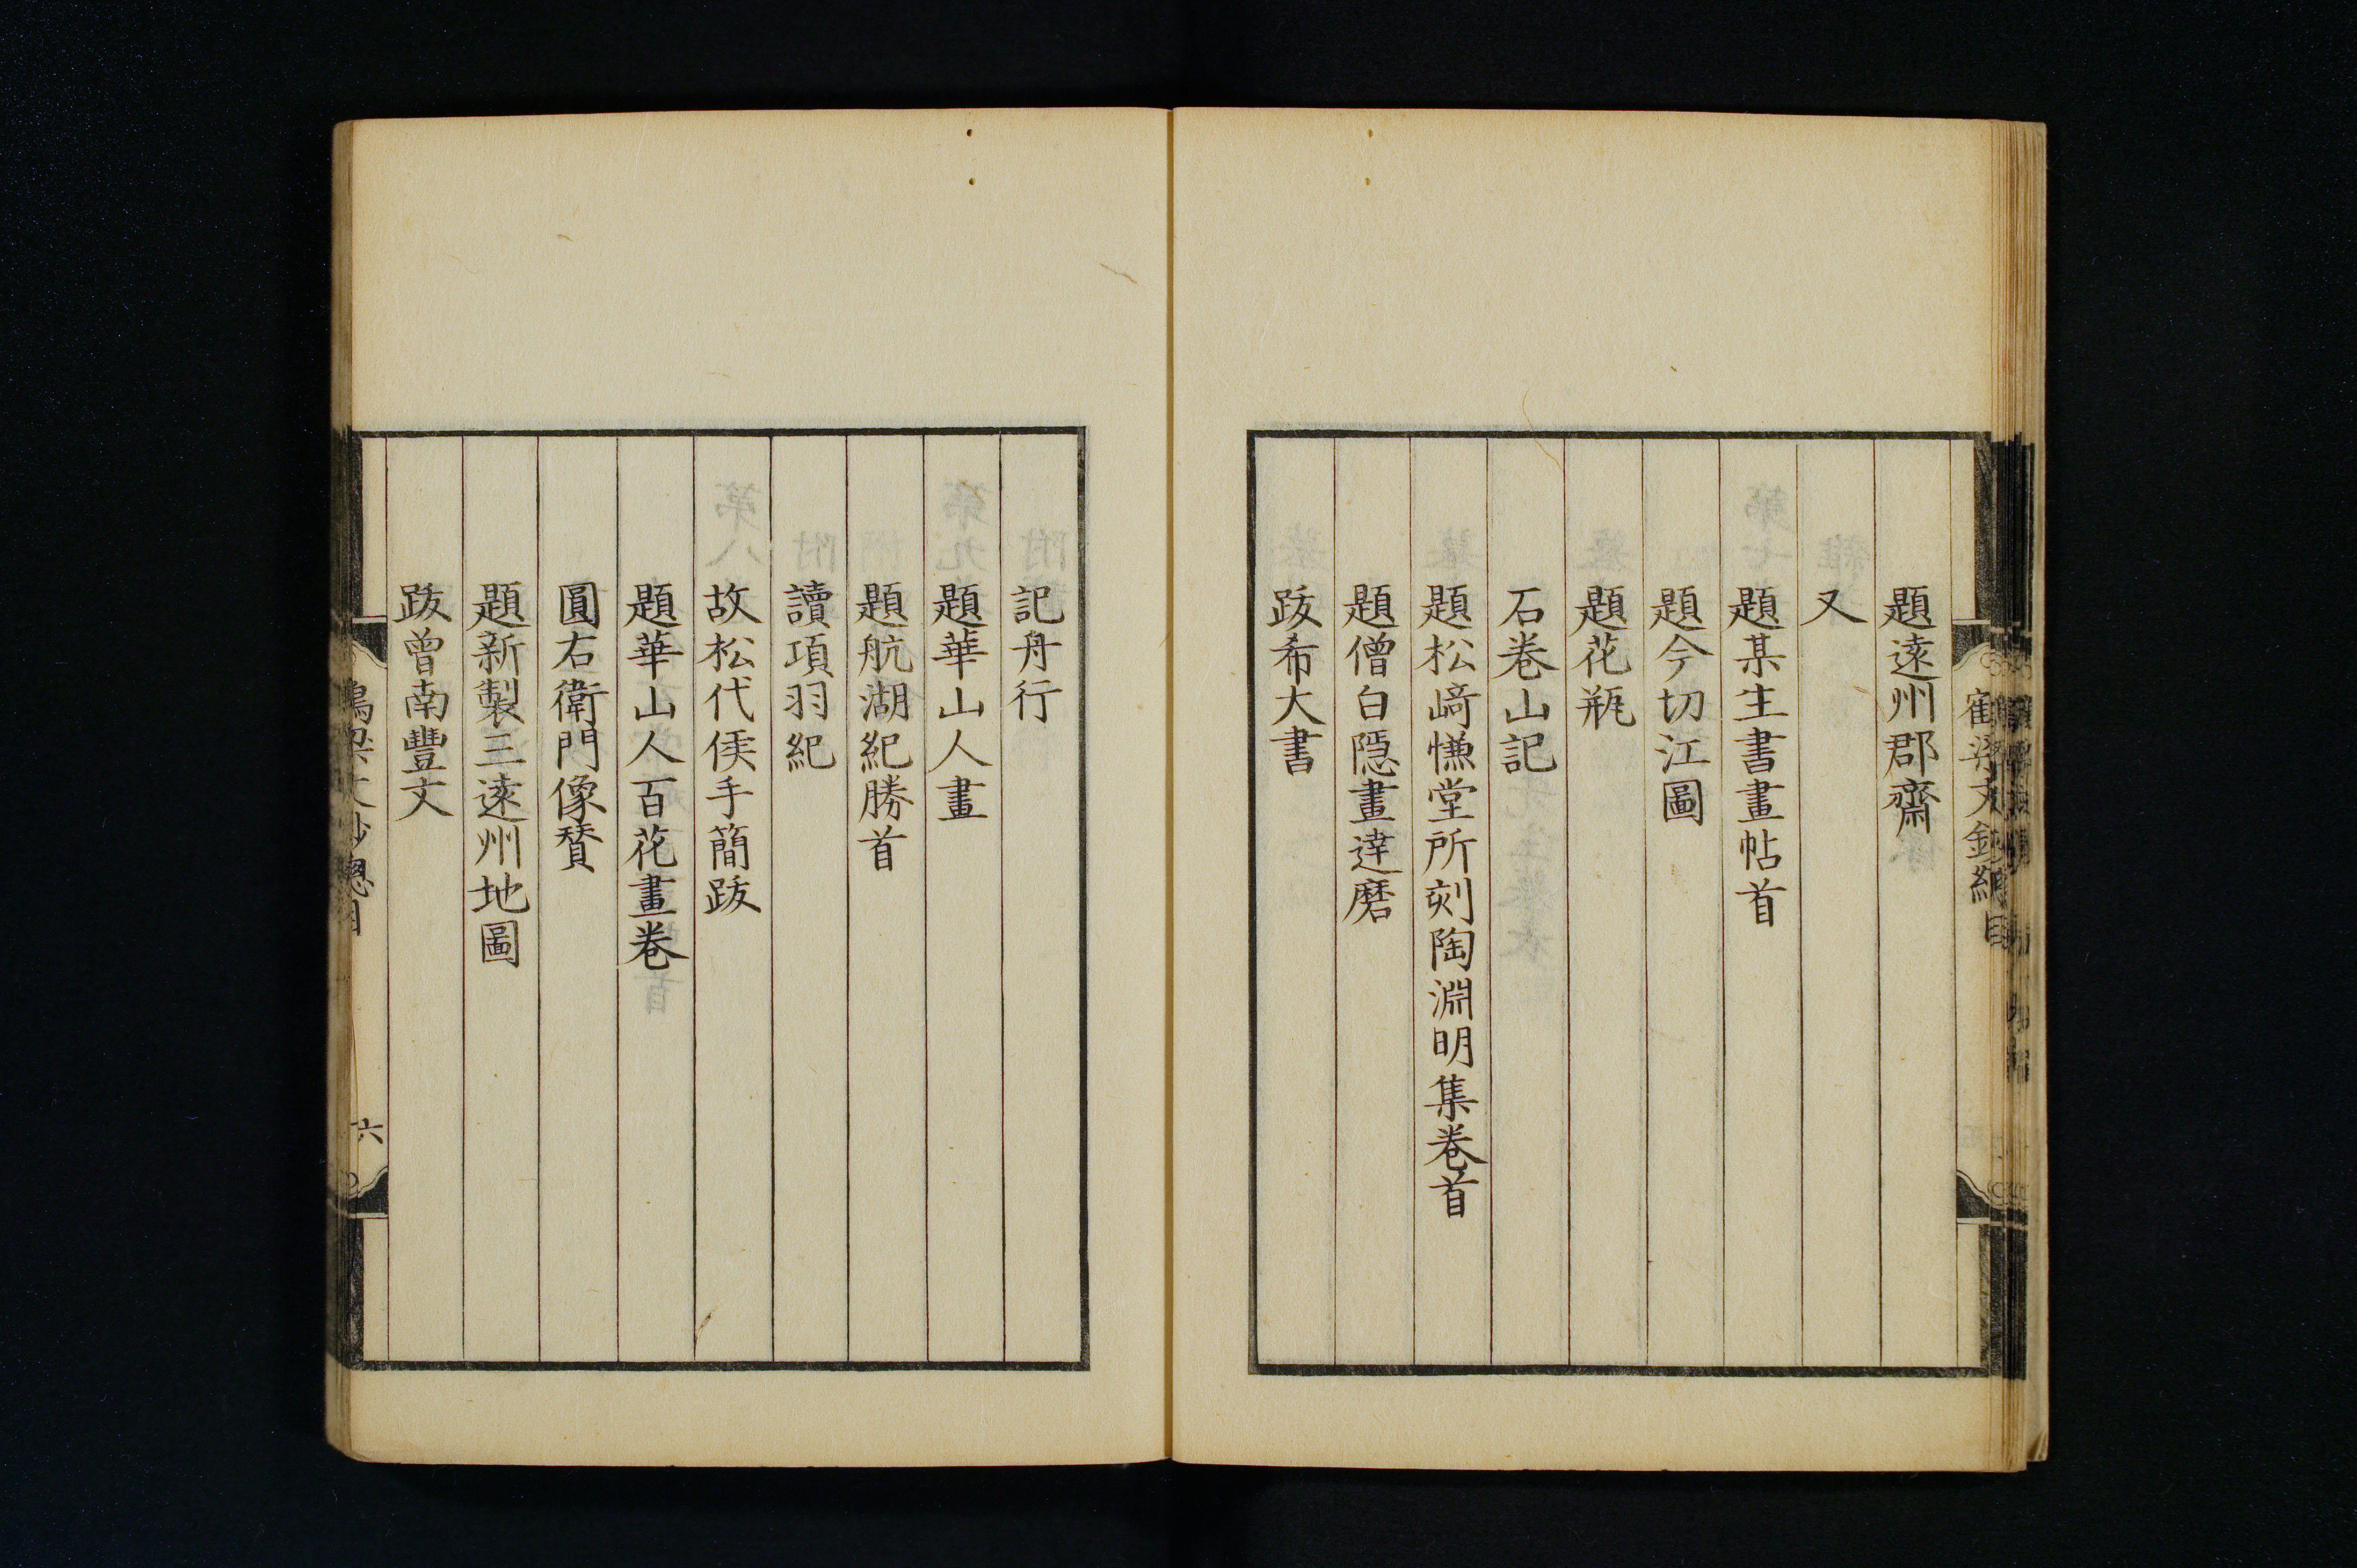 題遠州郡齋
又
題某生書畫帖首
題今切江圖
題花瓶
石巻山記
題松﨑慊堂所刻陶淵明集巻首
題僧白隠畫達磨
跋希大書
記舟行
題華山人畫
題航湖紀勝首
讀項羽紀
故松代侯手簡跋
題華山人百花畫巻
圓右衛門像賛
題新製三遠州地圖
跋曾南豐文
六